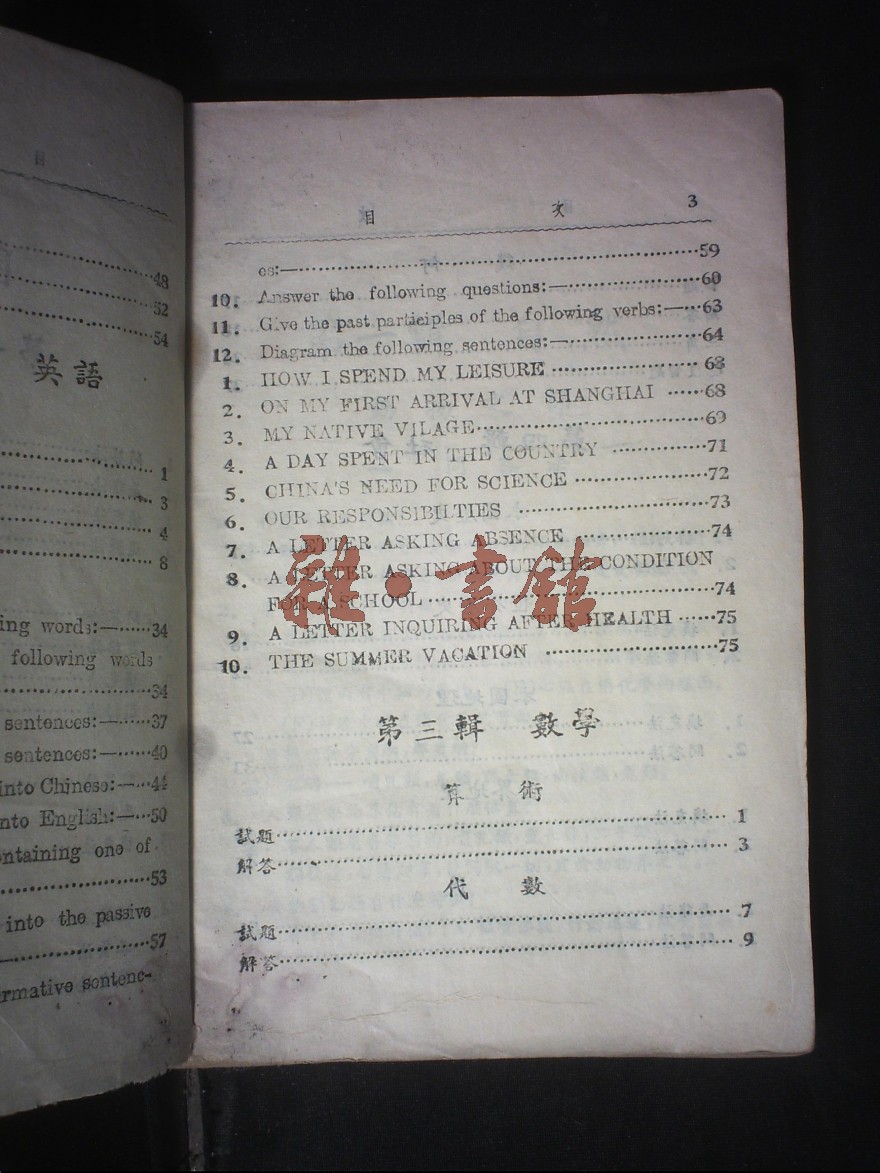 目
48
52
54
英語
1
3
4
8
ing words:—······34
following words
34
sentences:—······37
sentences:—······40
into Chinese:—···44
nto English:—···50
ntaining one of
53
into the passive
57
rmative sentenc-
目 次 3
es:—······59
10. Answer the following questions:—······60
11. Give the past participles of the following verbs:—···63
12. Diagram the following sentences:—······64
1. HOW I SPEND MY LEISURE ······68
2. ON MY FIRST ARRIVAL AT SHANGHAI ······68
3. MY NATIVE VILAGE······69
4. A DAY SPENT IN THE COUNTRY ······71
5. CHINA'S NEED FOR SCIENCE ······72
6. OUR RESPONSIBILTIES ······73
7. A LETTER ASKING ABSENCE ······74
8. A LETTER ASKING ABOUT THE CONDITION
FOR A SCHOOL ······74
9. A LETTER INQUIRING AFTER HEALTH ······75
10. THE SUMMER VACATION ······75
雜·書館
第三輯 數學
算術
試題······1
解答······3
代數
試題······7
解答······9